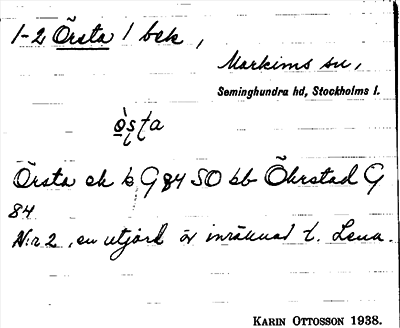 1-2 Örsta 1 bek,
Markims sn,
Seminghundra hd, Stockholms l.
Örsta ek k G 84 SO kb Öhrstad G
84
N:r 2, en utjord är inräknad t. Lena.
KARIN OTTOSSON 1938.